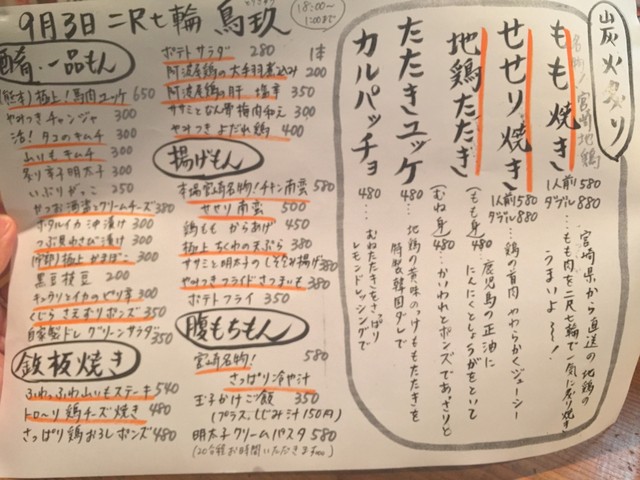 9月3日 二尺七輪 鳥玖
18:00〜
1:00まで
酒肴・一品もん
極上!馬肉ユッケ 650
やみつきチャンジャ 300
活!タコのキムチ 300
山いもキムチ 300
炙り辛子明太子 300
いぶりがっこ 250
かつお酒盗とクリームチーズ 380
ホタルイカ沖漬け 300
つぶ貝わさび漬け 300
極上かまぼこ 300
黒豆枝豆 200
キュウリとイカのピリ辛 300
くじらさえずりポンズ 350
自家製ドレグリーンサラダ 350
鉄板焼き
ふわっふわ山いもステーキ 540
トロ〜リ鶏チーズ焼き 480
さっぱり鶏おろしポンズ 480
ポテトサラダ 280
阿波尾鶏の大手羽煮込み 1本 200
阿波尾鶏の肝 塩辛 350
ササミとなん骨梅肉和え 300
やみつきよだれ鶏 400
揚げもん
本場宮崎名物!チキン南蛮 580
せせり南蛮 500
鶏ももからあげ 450
極上ちくわの天ぷら 380
ササミと明太子のしそ包み揚げ 380
やみつきフライドさつまいも 380
ポテトフライ 350
腹もちもん
宮崎名物! 580
さっぱり冷や汁
玉子かけごはん 350
(プラス、しじみ汁150円)
明太子クリームパスタ 580
(20分程お時間いただきます)
炭火炙り
名物!宮崎地鶏
もも焼き 1人前580 ダブル880
…宮崎県から直送の地鶏の
もも肉を二尺七輪で一気に炙り焼き
うまいよ〜!
せせり焼き 1人前580 ダブル880
…鶏の首肉 やわらかくジューシー
地鶏たたき (もも身)480…鹿児島の正油に
にんにくとしょうがをといて
(むね身)480…かいわれとポンズであっさりと
たたきユッケ 480…地鶏の黄味のっけももたたきを
特製韓国ダレで
カルパッチョ 480…むねたたきをさっぱり
レモンドレッシングで